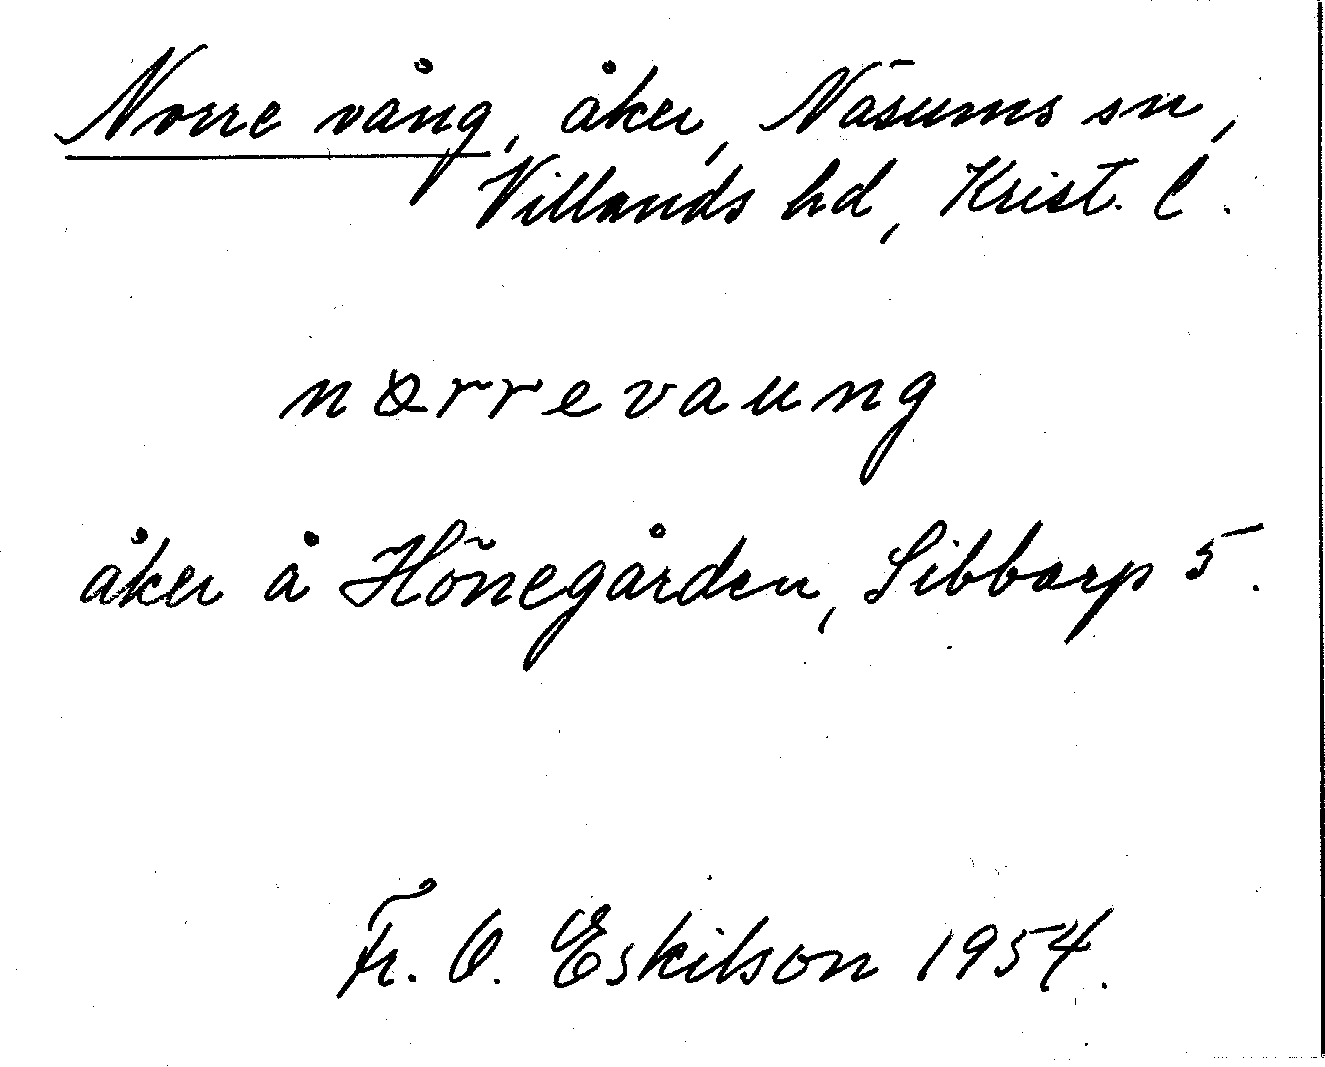 Norre vång, åker, Näsums sn,
Villands hd, Krist. l.
nørrevaung
åker å Hönegården, Sibbarp 5.
Fr. O. Eskilson 1954.